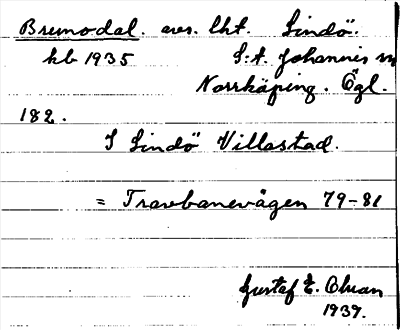 Brunnodal. avs. lht. Lindö.
kb 1935 S:t Johannis
Norrköping. Ögl.
182.
I Lindö Villastad.
= Travbanevägen 79-81
Gustaf E. Ohran
1939.